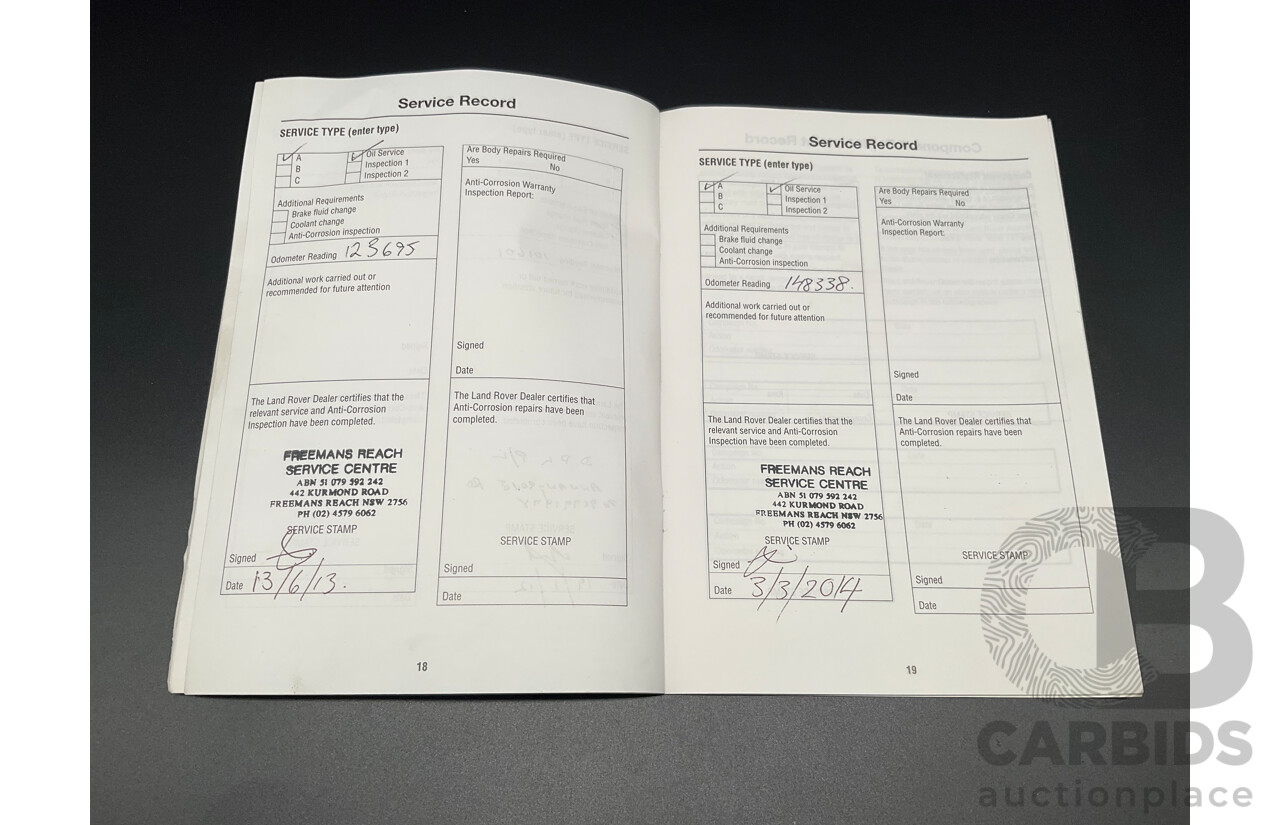 Service Record
SERVICE TYPE (enter type)
A
B
C
Oil Service
Inspection 1
Inspection 2
Additional Requirements
Brake fluid change
Coolant change
Anti-Corrosion inspection
Odometer Reading 123695
Additional work carried out or
recommended for future attention
The Land Rover Dealer certifies that the
relevant service and Anti-Corrosion
Inspection have been completed.
FREEMANS REACH
SERVICE CENTRE
ABN 51 079 592 242
442 KURMOND ROAD
FREEMANS REACH NSW 2756
PH (02) 4579 6062
SERVICE STAMP
Signed
Date 13/6/13.
Are Body Repairs Required
Yes No
Anti-Corrosion Warranty
Inspection Report:
Signed
Date
The Land Rover Dealer certifies that
Anti-Corrosion repairs have been
completed.
SERVICE STAMP
Signed
Date
18
Service Record
SERVICE TYPE (enter type)
A
B
C
Oil Service
Inspection 1
Inspection 2
Additional Requirements
Brake fluid change
Coolant change
Anti-Corrosion inspection
Odometer Reading 148338.
Additional work carried out or
recommended for future attention
The Land Rover Dealer certifies that the
relevant service and Anti-Corrosion
Inspection have been completed.
FREEMANS REACH
SERVICE CENTRE
ABN 51 079 592 242
442 KURMOND ROAD
FREEMANS REACH NSW 2756
PH (02) 4579 6062
SERVICE STAMP
Signed
Date 3/3/2014
Are Body Repairs Required
Yes No
Anti-Corrosion Warranty
Inspection Report:
Signed
Date
The Land Rover Dealer certifies that
Anti-Corrosion repairs have been
completed.
SERVICE STAMP
Signed
Date
19
CARBIDS
auctionplace